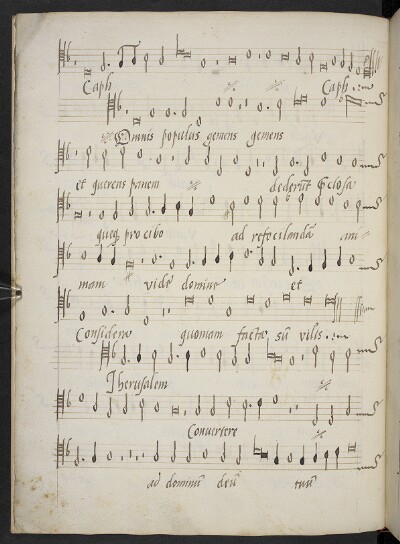 Caph Caph
Omnis populus gemens gemens
et querens panem dederūt
queq; pro cibo ad refocilandā ani
mam vide domine et
Considera quoniam facta sū vilis
Jherusalem
Convertere
ad dominū deū tuū